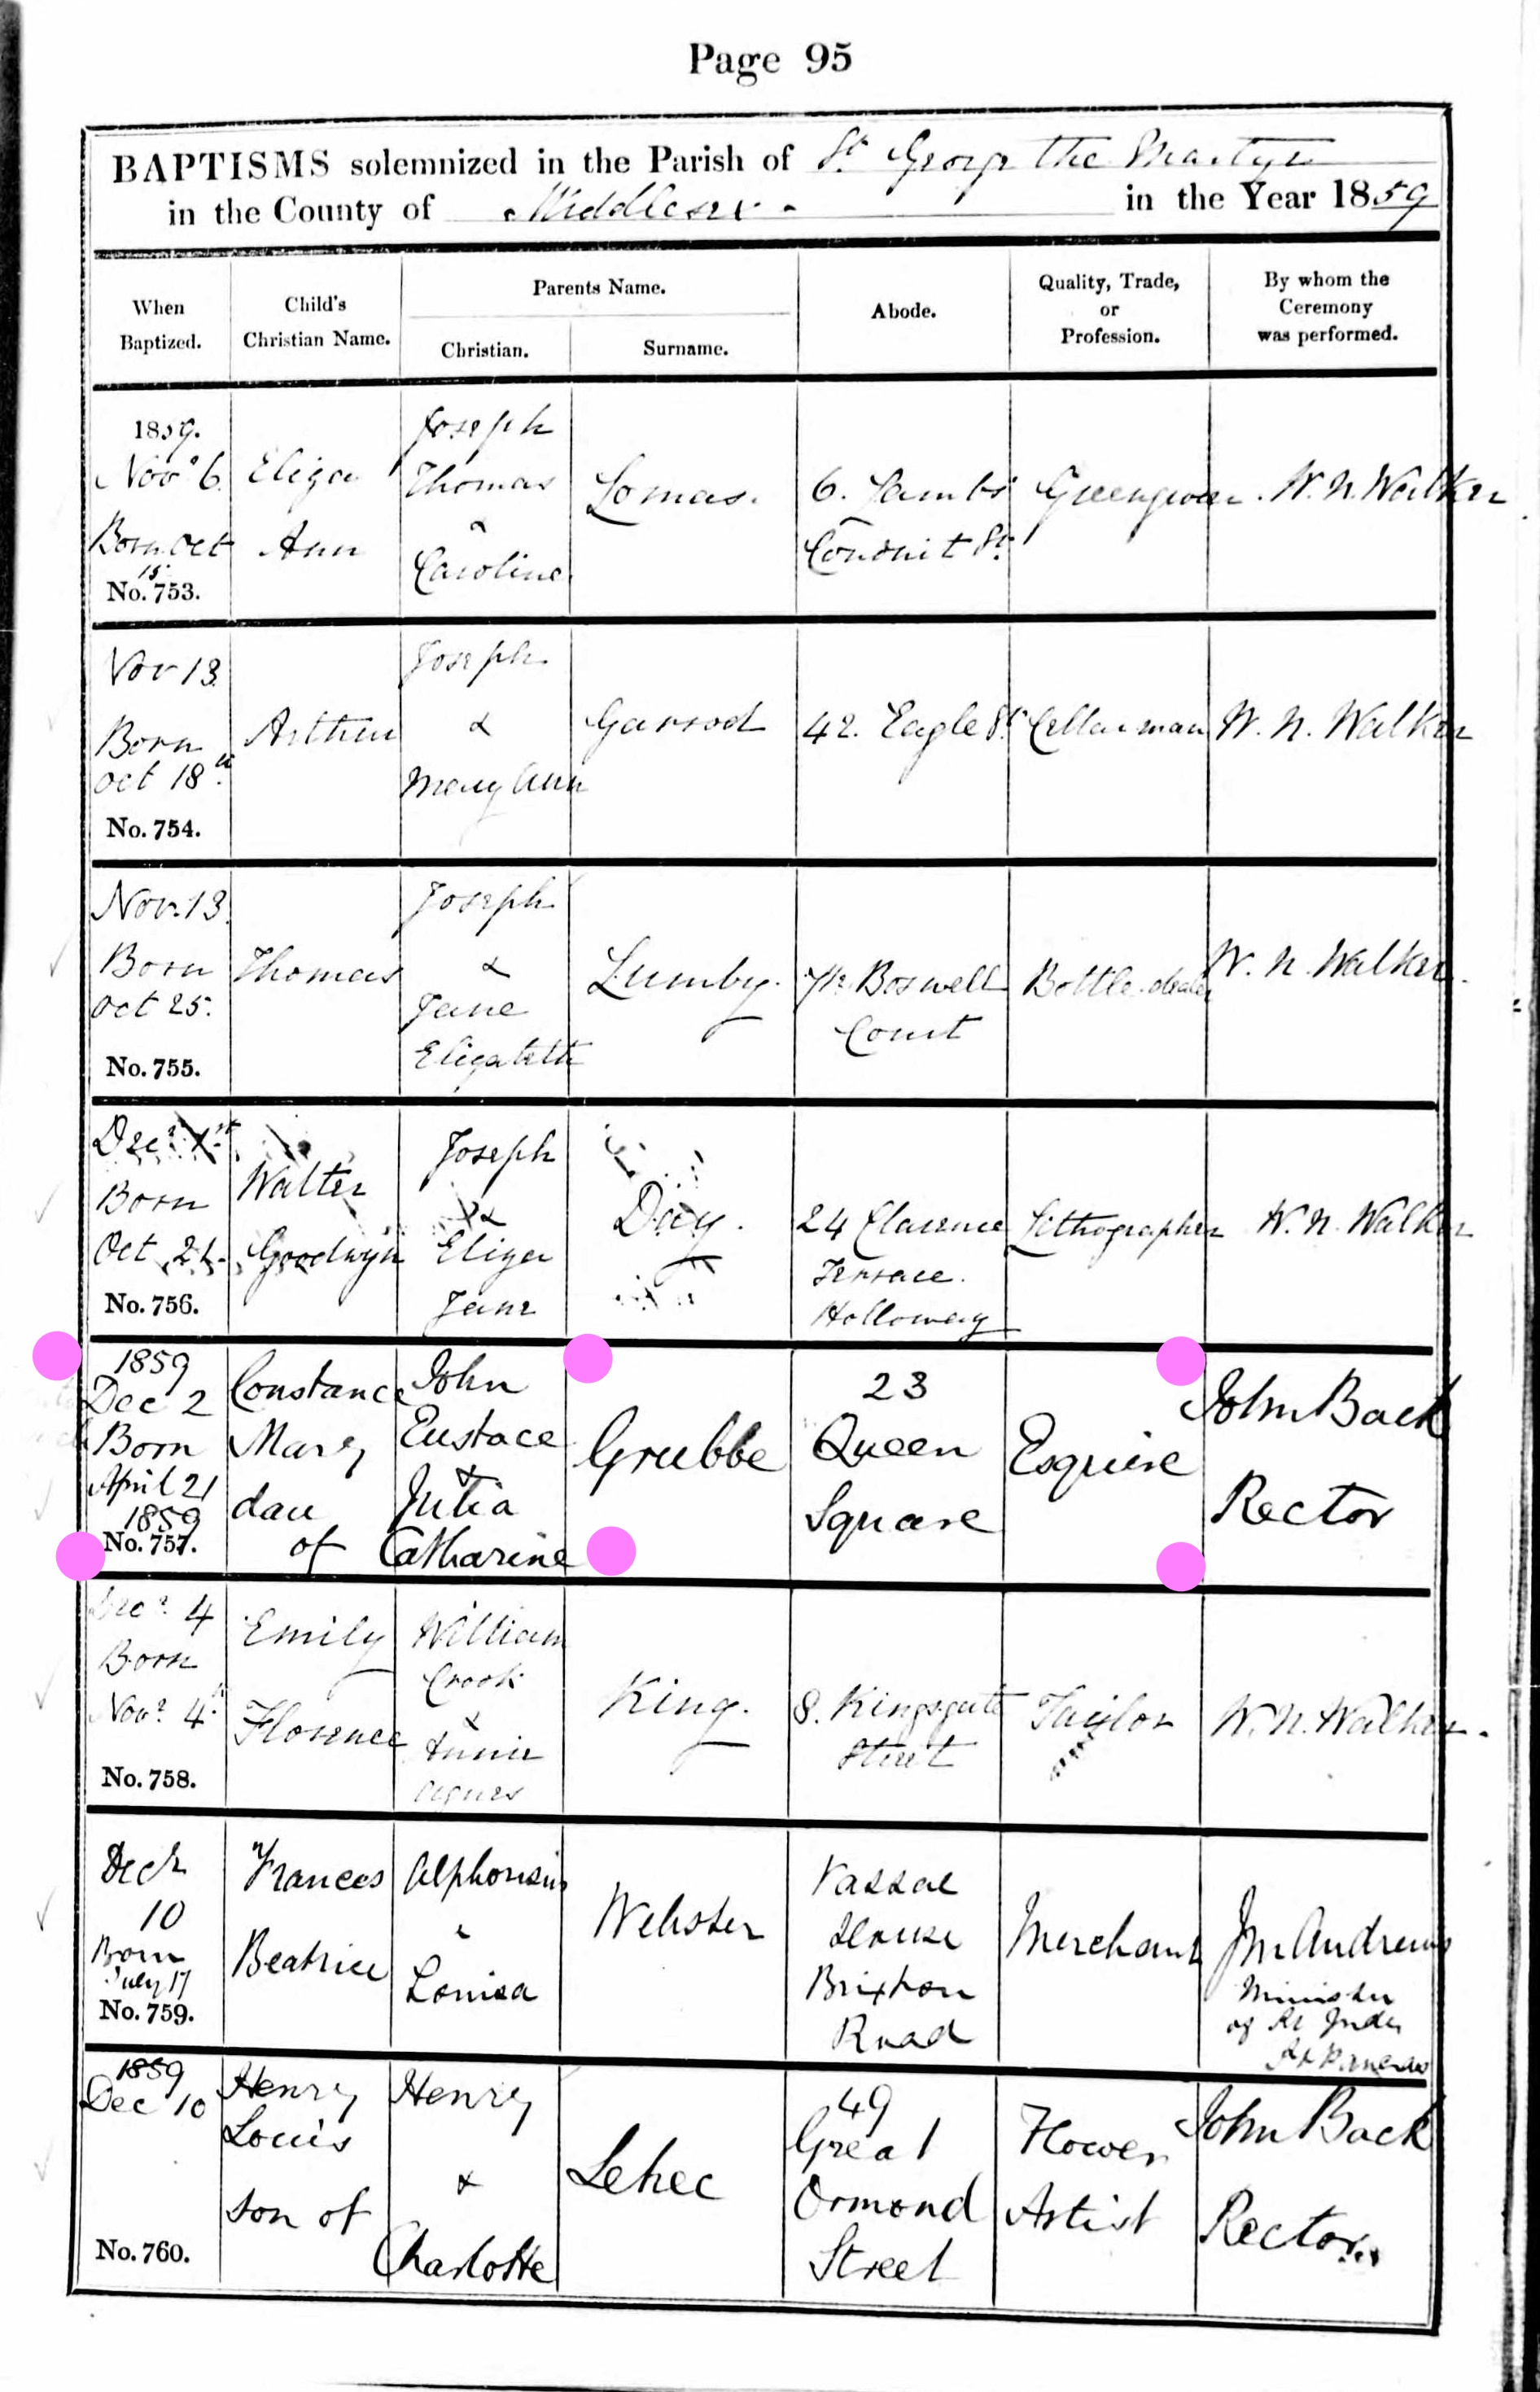 Page 95
BAPTISMS solemnized in the Parish of St. George the Martyr
in the County of Middlesex - in the Year 1859
When
Baptized.
Child's
Christian Name.
Parents Name.
Christian.
Surname.
Abode.
Quality, Trade,
or
Profession.
By whom the
Ceremony
was performed.
1859.
Novr 6.
Born Oct
15.
No. 753.
Eliza
Ann
Joseph
Thomas
&
Caroline
Lomas.
6. Lambs
Conduit St.
Greengrocer.
W. N. Walker
Nov 13
Born
Oct 18th.
No. 754.
Arthur
Joseph
&
Mary Ann
Garrod
42. Eagle St.
Cellarman
W. N. Walker
Nov. 13.
Born
Oct 25.
No. 755.
Thomas
Joseph
&
Jane
Elizabeth
Lumby.
Boswell
Court
Bottle dealer
W. N. Walker.
Decr 1st
Born
Oct 21.
No. 756.
Walter
Goodwyn
Joseph
&
Eliza
Jane
Day.
24 Clarence
Terrace.
Holloway
Lithographer
W. N. Walker
1859
Dec 2
Born
April 21
1859
No. 757.
Constance
Mary
dau
of
John
Eustace
&
Julia
Catharine
Grubbe
23
Queen
Square
Esquire
John Back
Rector
Decr. 4
Born
Novr. 4th.
No. 758.
Emily
Florence
William
Crook
&
Annie
Agnes
King.
8. Kingsgate
Street
Tailor
W. N. Walker.
Decr
10
Born
July 17
No. 759.
Frances
Beatrice
Alphonsus
&
Louisa
Webster
Vassal
House
Brixton
Road
Merchant
Jm Andrews
Minister
of St Judes
St Pancras
1859
Dec 10
No. 760.
Henry
Louis
son of
Henry
&
Charlotte
Lehec
49
Great
Ormond
Street
Flower
Artist
John Back
Rector